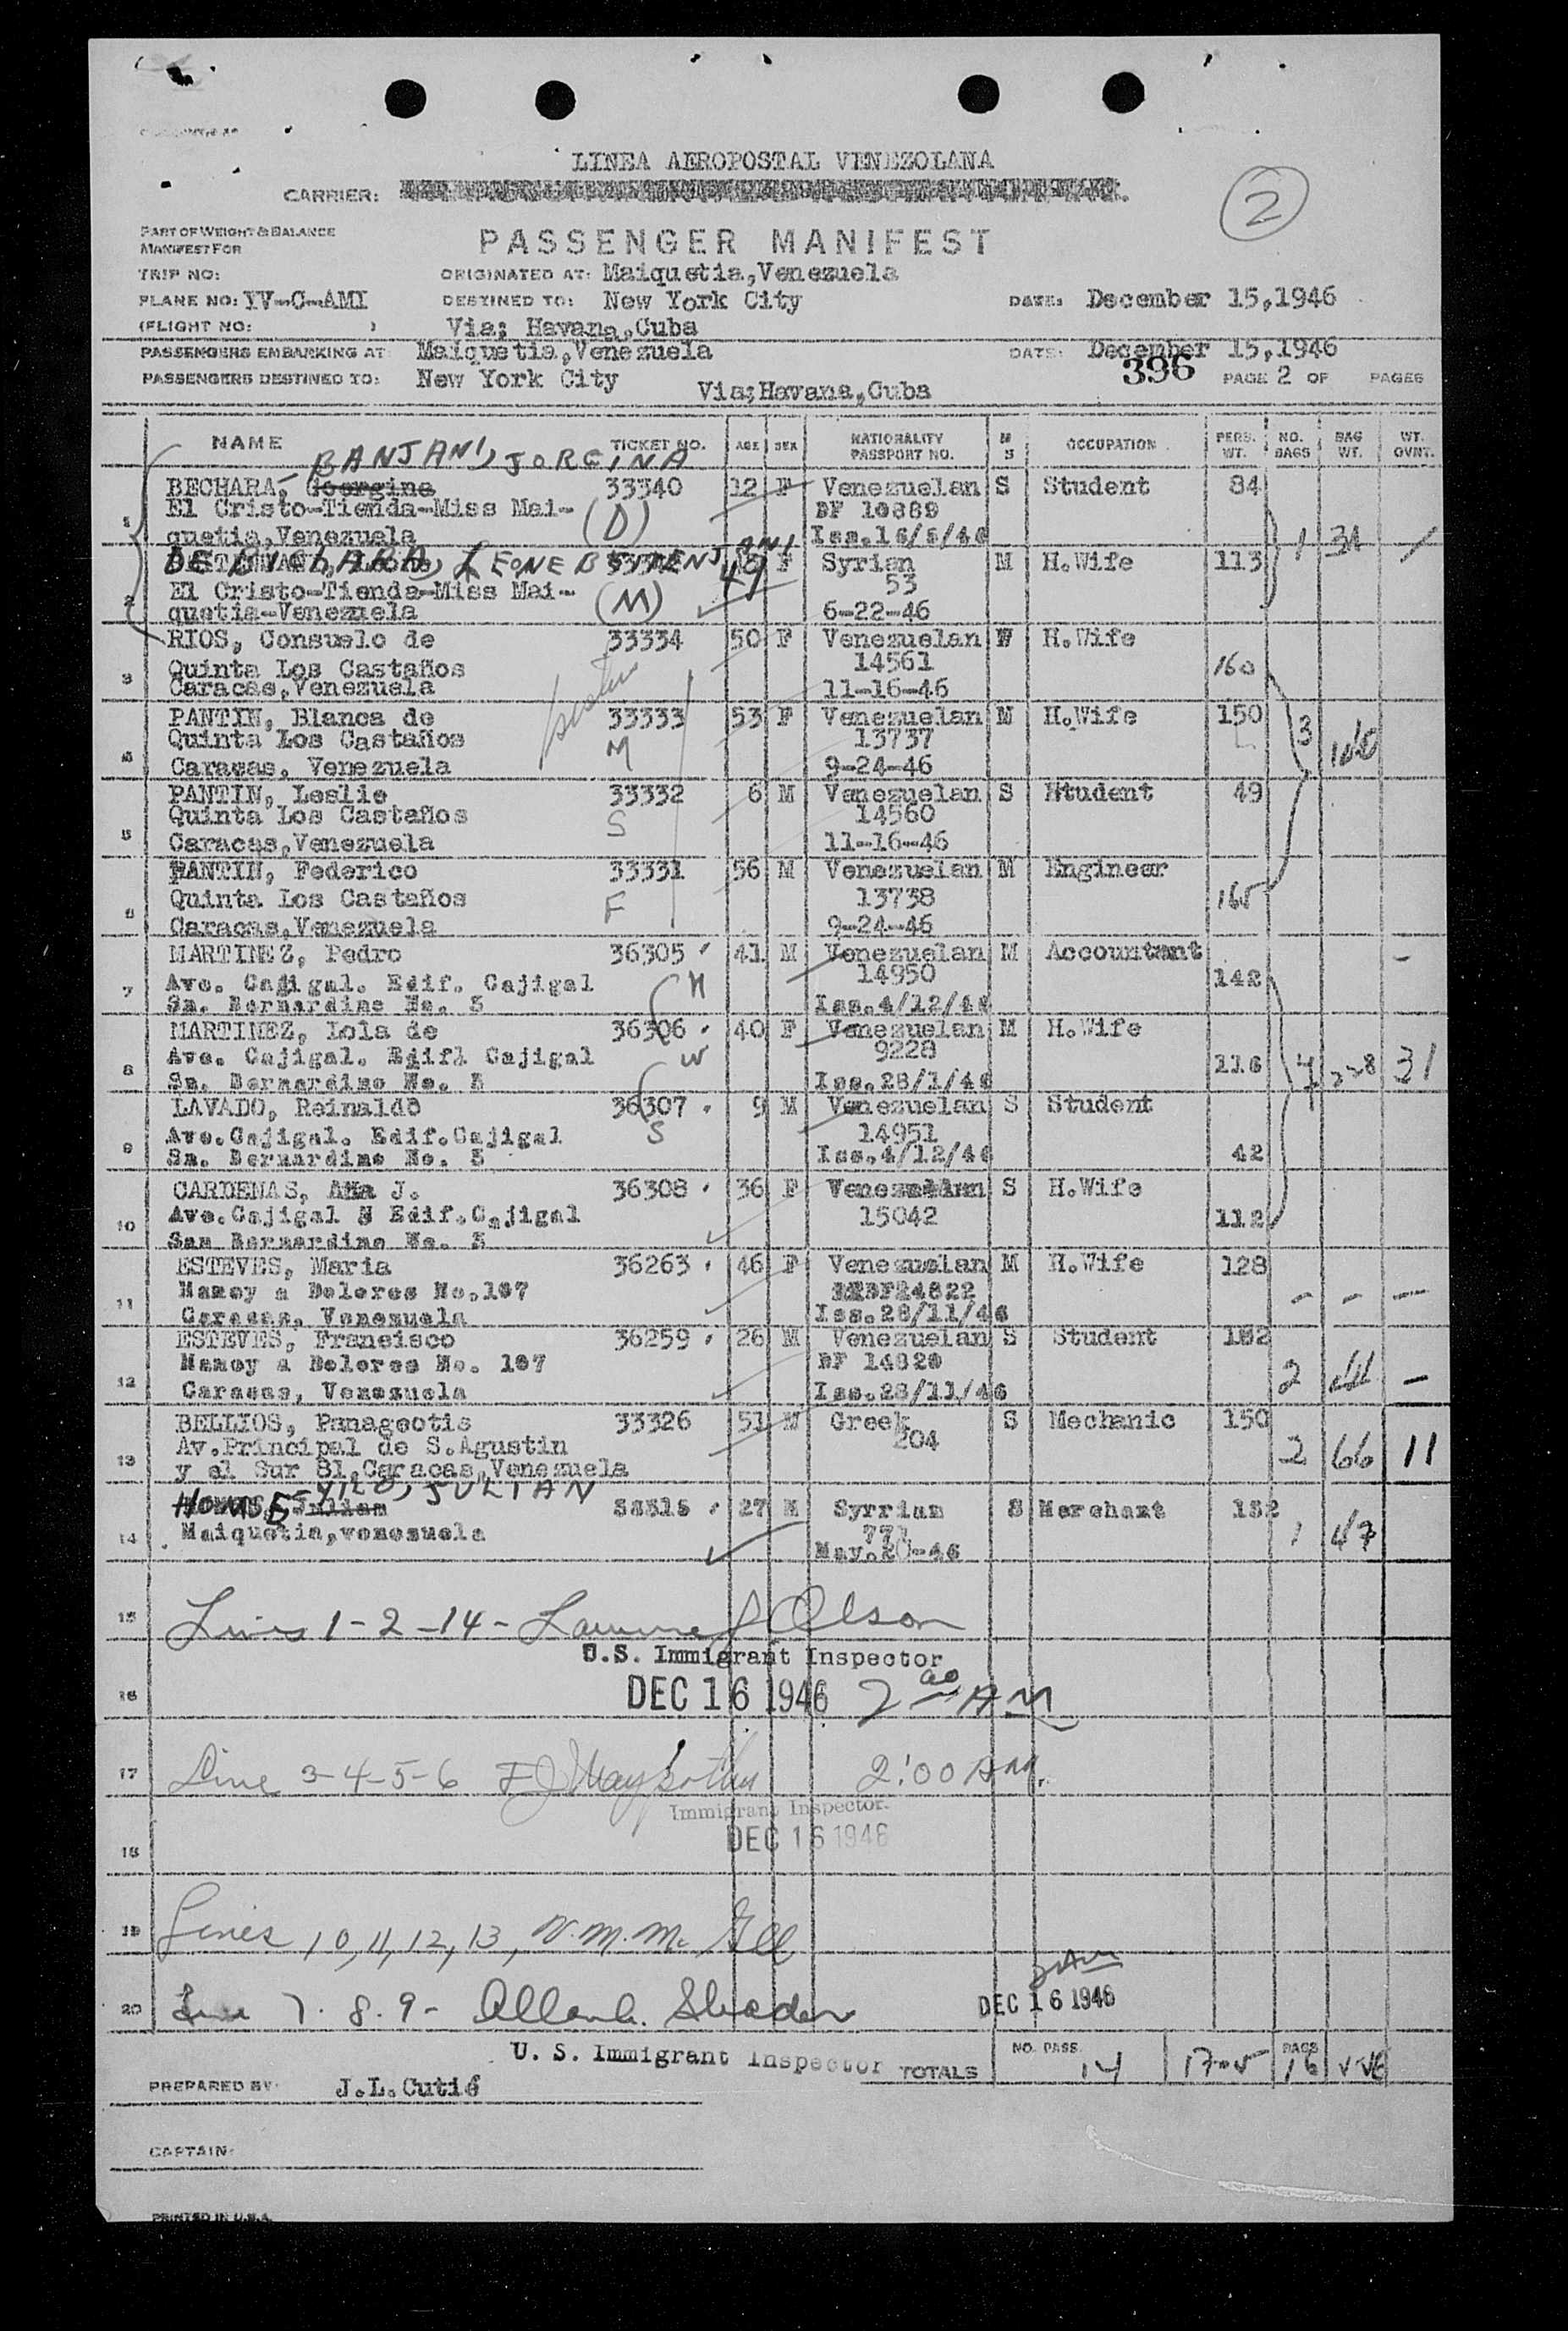 LINEA AEROPOSTAL VENEZOLANA
CARRIER:
2
PART OF WEIGHT & BALANCE
MANIFEST FOR
PASSENGER MANIFEST
TRIP NO: ORIGINATED AT: Maiquetia,Venezuela
PLANE NO: YV-C-AMI DESTINED TO: New York City DATE: December 15,1946
(FLIGHT NO: ) Via; Havana,Cuba
PASSENGERS EMBARKING AT Maiquetia,Venezuela DATE: December 15,1946
396 PAGE 2 OF PAGES
PASSENGERS DESTINED TO: New York City Via;Havana,Cuba
NAME TICKET NO. AGE SEX NATIONALITY PASSPORT NO. M S OCCUPATION PERS. WT. NO. BAGS BAG WT. WT. OVNT.
BANJANI, JORGINA
BECHARA, Georgina 33340 12 F Venezuelan S Student 84
El Cristo-Tienda-Miss Mai- (D) BF 10889
1 quetia,Venezuela Iss.16/5/46 1 31 /
DE BICHARA, LEONE 49 F Syrian M H.Wife 113
El Cristo-Tienda-Miss Mai- (M) 53
2 quetia-Venezuela 6-22-46
RIOS, Consuelo de 33334 50 F Venezuelan W H.Wife
3 Quinta Los Castaños 14561 160
Caracas,Venezuela 11-16-46
PANTIN, Blanca de 33333 53 F Venezuelan M H.Wife 150
Quinta Los Castaños M 13737 3
4 Caracas, Venezuela 9-24-46
PANTIN, Leslie 33332 6 M Venezuelan S Student 49
Quinta Los Castaños S 14560
5 Caracas,Venezuela 11-16-46
PANTIN, Federico 33331 56 M Venezuelan M Engineer
6 Quinta Los Castaños F 13738 165
Caracas,Venezuela 9-24-46
MARTINEZ, Pedro 36305 41 M Venezuelan M Accountant -
7 Ave. Cajigal. Edif. Cajigal H 14950 142
Sn. Bernardino No. 5 Iss.4/12/46
MARTINEZ, Lola de 36306 40 F Venezuelan M H.Wife
8 Ave. Cajigal. Edifl Cajigal W 9228 116 31
Sn. Bernardino No. 5 Iss.28/1/46
LAVADO, Reinaldo 36307 9 M Venezuelan S Student
9 Ave.Cajigal. Edif.Cajigal S 14951
Sn. Bernardino No. 5 Iss.4/12/46 42
CARDENAS, Ana J. 36308 36 F Venezuelan S H.Wife
10 Ave.Cajigal Edif.Cajigal 15042 112
San Bernardino No. 5
ESTEVES, Maria 36263 46 F Venezuelan M H.Wife 128
Mamey a Dolores No.107 BF14822 - - -
11 Caracas, Venezuela Iss.28/11/46
ESTEVES, Francisco 36259 26 M Venezuelan S Student 152
Mamey a Dolores No. 107 BF 14820
12 Caracas, Venezuela Iss.28/11/46 2 44 -
BELLIOS, Panageotis 33326 51 M Greek S Mechanic 150
Av.Principal de S.Agustin 204
13 y el Sur 81,Caracas,Venezuela 2 66 11
JULIAN
Julian 27 M Syrrian S Merchant 152
14 Maiquetia,venezuela 771 1 47
May.20-46
15 Lines 1-2-14- Olson
U.S. Immigrant Inspector
16 DEC 16 1946 2 00 AM
17 Line 3-4-5-6 2:00 AM.
Immigrant Inspector.
18 DEC 16 1946
19 Lines 10,11,12,13,
20 Line 7. 8. 9- DEC 16 1946
U. S. Immigrant Inspector TOTALS NO. PASS. 14 BAGS 16
PREPARED BY: J.L.Cutié
CAPTAIN:
PRINTED IN U.S.A.